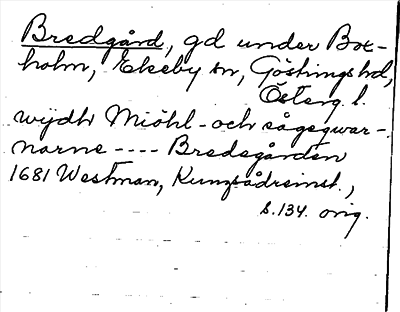 Bredgård, gd under Box-
holm, Ekeby sn, Göstrings hd,
Österg. l.
wijdh Miöhl- och sågeqwar-
narne ---- Bredegården
1681 Westman, Kungsådreinst.,
s. 134. orig.